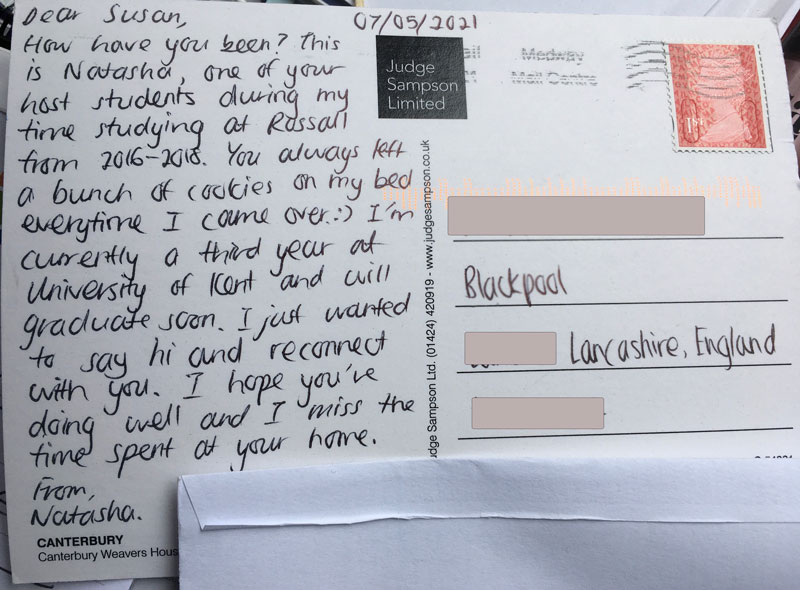 Dear Susan,
How have you been? This
is Natasha, one of your
host students during my
time studying at Rossall
from 2016-2018. You always left
a bunch of cookies on my bed
everytime I came over.:) I'm
currently a third year at
University of Kent and will
graduate soon. I just wanted
to say hi and reconnect
with you. I hope you've
doing well and I miss the
time spent at your home.
From,
Natasha.
CANTERBURY
Canterbury Weavers Hous
07/05/2021
Judge
Sampson
Limited
Medway
Mail Centre
1ST
udge Sampson Ltd. (01424) 420919 - www.judgesampson.co.uk
Blackpool
Lancashire, England